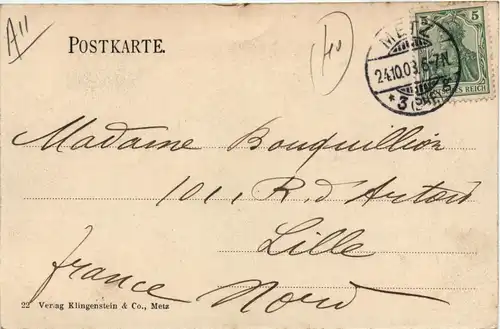 A11
POSTKARTE.
40
METZ
24.10.03. 6-7N.
* 3
5
5
REICH
Madame Bouquillion
101, R. d'Artois
Lille
france Nord
22 Verlag Klingenstein & Co., Metz